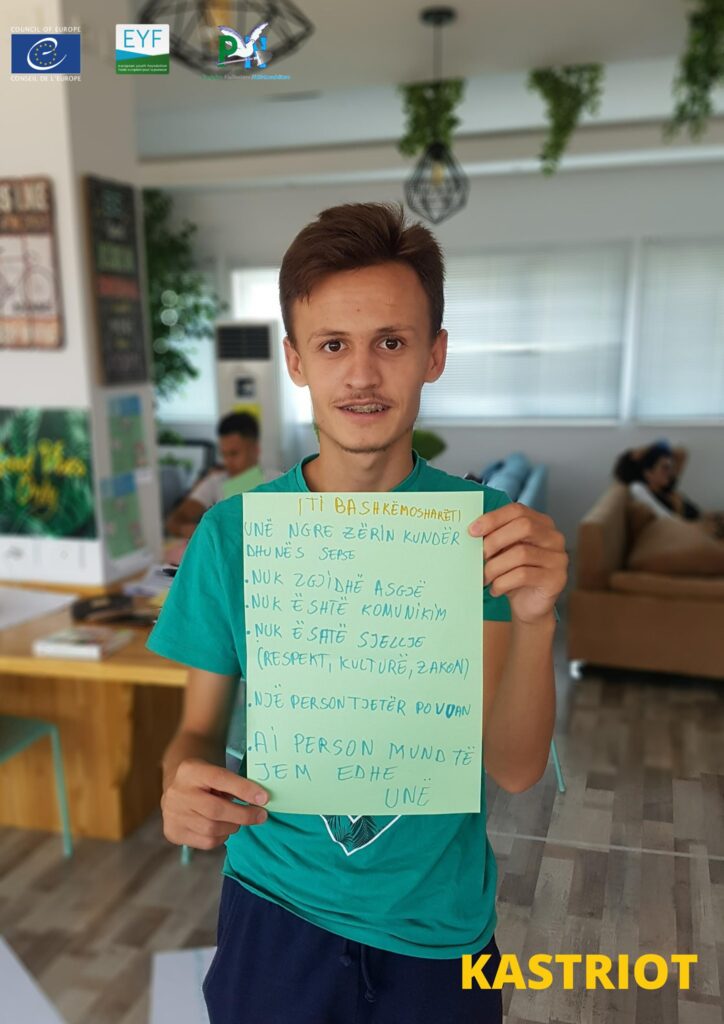 COUNCIL OF EUROPE
CONSEIL DE L'EUROPE
EYF
european youth foundation
I TI BASHKËMOSHARËTI
UNË NGRE ZËRIN KUNDËR
DHUNËS SEPSE
.NUK ZGJIDHË ASGJË
.NUK ËSHTË KOMUNIKIM
.NUK ËSHTË SJELLJE
(RESPEKT, KULTURË, ZAKON)
.NJË PERSON TJETËR PO VUAN
.AI PERSON MUND TË
JEM EDHE
UNË
KASTRIOT